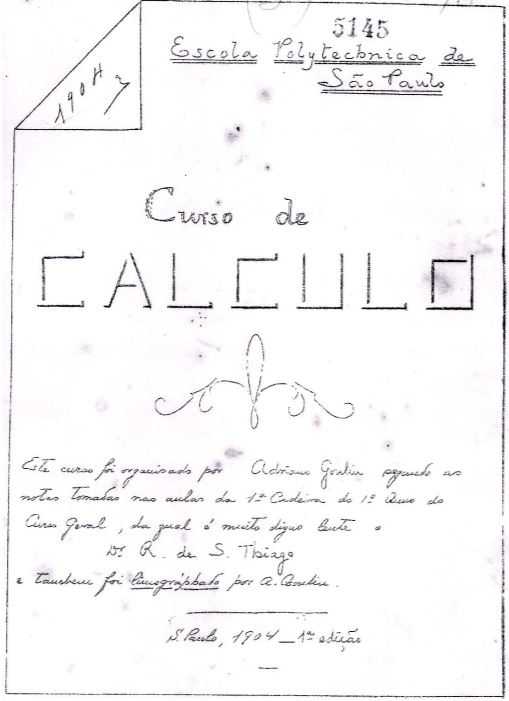 5145
Escola Polytechnica de
São Paulo
1904
Curso de
CALCULO
Este curso foi organisado por Adriano Goulin segundo as
notas tomadas nas aulas da 1ª Cadeira do 1º Anno do
Curso Geral, da qual é muito digno lente o
Dr R. de S. Thiago
e tambem foi limográphado por A. Goulin.
S. Paulo, 1904 _ 1ª edição